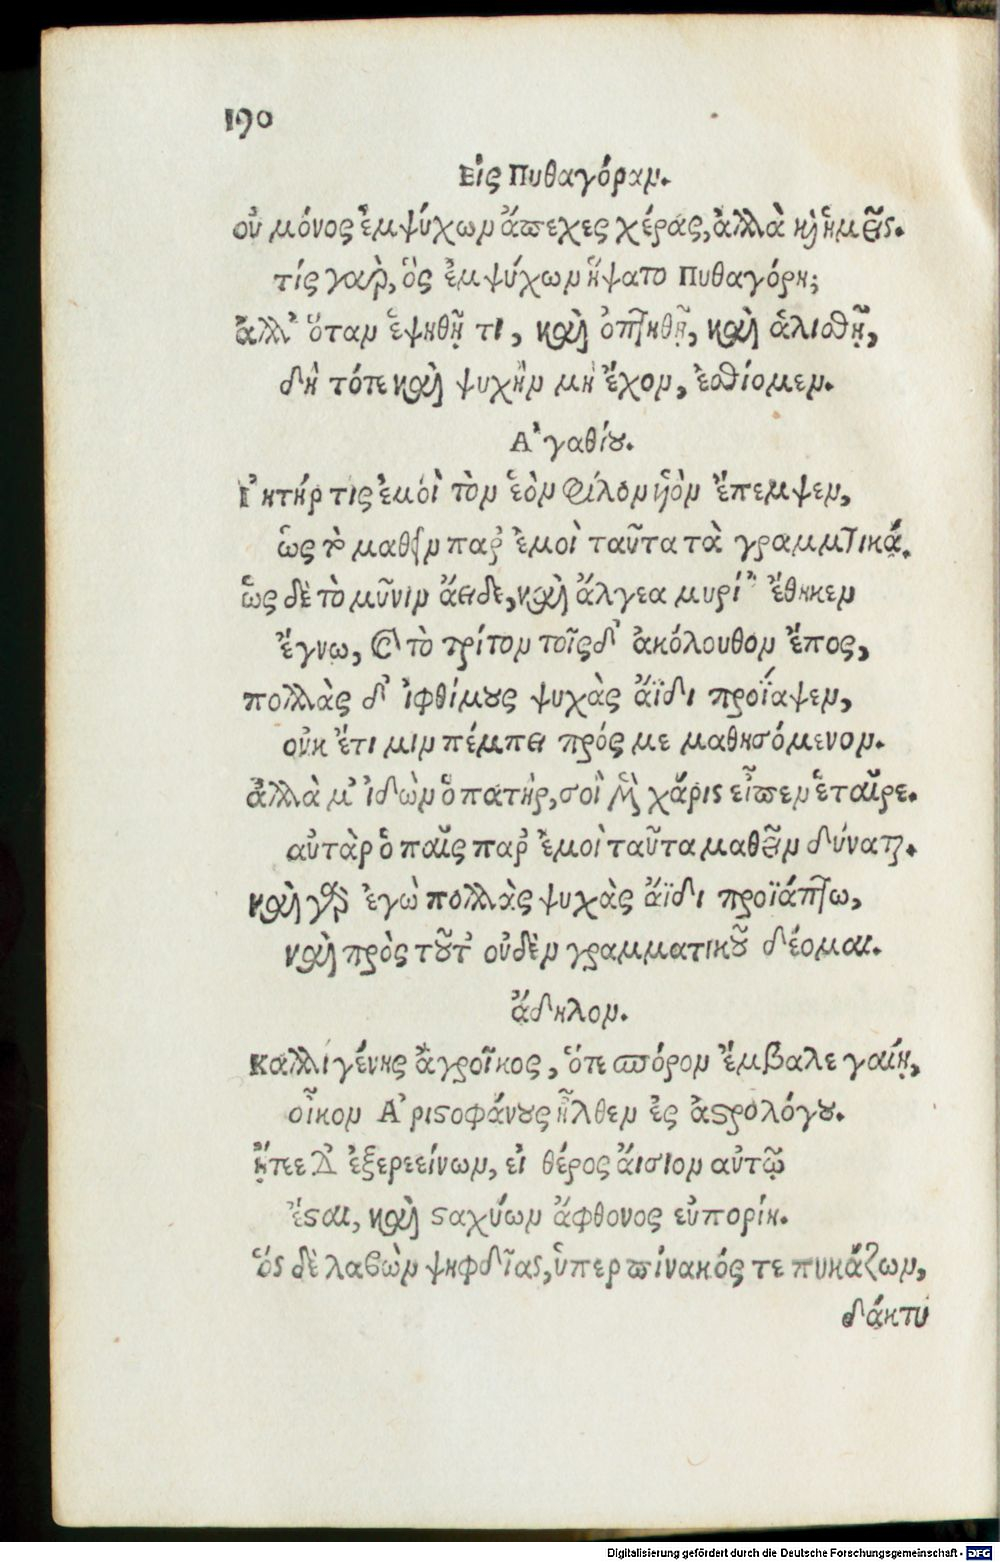 190
Εἰς Πυθαγόραν.
οὐ μόνος ἐμψύχων ἄπεχες χέρας, ἀλλὰ καὶ ἡμεῖς.
τίς γὰρ, ὃς ἐμψύχων ἥψατο Πυθαγόρη;
ἀλλ' ὅταν ἑψηθῇ τι, καὶ ὀπτηθῇ, καὶ ἁλισθῇ,
δὴ τότε καὶ ψυχὴν μὴ ἔχον, ἐσθίομεν.
Ἀγαθίου.
Ἰητήρ τις ἐμοὶ τὸν ἑὸν φίλον υἱὸν ἔπεμψεν,
ὥς τε μαθεῖν παρ' ἐμοὶ ταῦτα τὰ γραμματικά.
ὡς δὲ τὸ μῦνιν ἄειδε, καὶ ἄλγεα μυρί' ἔθηκεν
ἔγνω, καὶ τὸ τρίτον τοῖς δ' ἀκόλουθον ἔπος,
πολλὰς δ' ἰφθίμους ψυχὰς ἄϊδι προΐαψεν,
οὐκ ἔτι μιν πέμπει πρός με μαθησόμενον.
ἀλλὰ μ' ἰδὼν ὁ πατήρ, σοὶ μὲν χάρις εἶπεν ἑταῖρε.
αὐτὰρ ὁ παῖς παρ' ἐμοὶ ταῦτα μαθεῖν δύναται.
καὶ γὰρ ἐγὼ πολλὰς ψυχὰς ἄϊδι προϊάπτω,
καὶ πρὸς τοῦτ' οὐδὲν γραμματικοῦ δέομαι.
ἄδηλον.
Καλλιγένης ἀγροῖκος, ὅτε σπόρον ἔμβαλε γαίῃ,
οἶκον Ἀριστοφάνους ἦλθεν ἐς ἀστρολόγου.
ᾔτεε δ' ἐξερεείνων, εἰ θέρος αἴσιον αὐτῷ
ἔσται, καὶ σταχύων ἄφθονος εὐπορίη.
ὃς δὲ λαβὼν ψηφῖδας, ὑπερ πίνακός τε πυκάζων,
δάκτυ
Digitalisierung gefördert durch die Deutsche Forschungsgemeinschaft - DFG